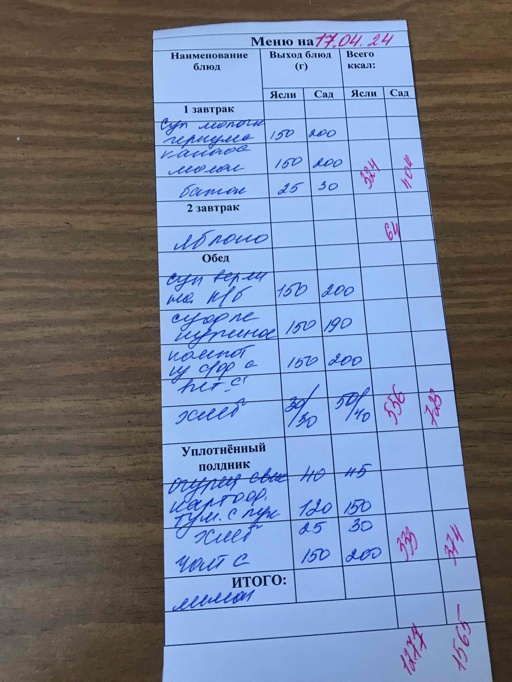 Меню на 17.04.24
Наименование блюд Выход блюд (г) Всего ккал:
Ясли Сад Ясли Сад
1 завтрак
суп молочн
150 200
какао с
молок 150 200
батон 25 30 324 404
2 завтрак
яблоко 64
Обед
суп верм
на к/б 150 200
суфле
куриное 150 190
компот
из сфр с 150 200
вит. С
хлеб 30/30 50/40 556 723
Уплотнённый полдник
огурец свеж 40 45
картоф.
туш. с кур 120 150
хлеб 25 30
чай с 150 200 333 374
ИТОГО:
лимон
1277 1565